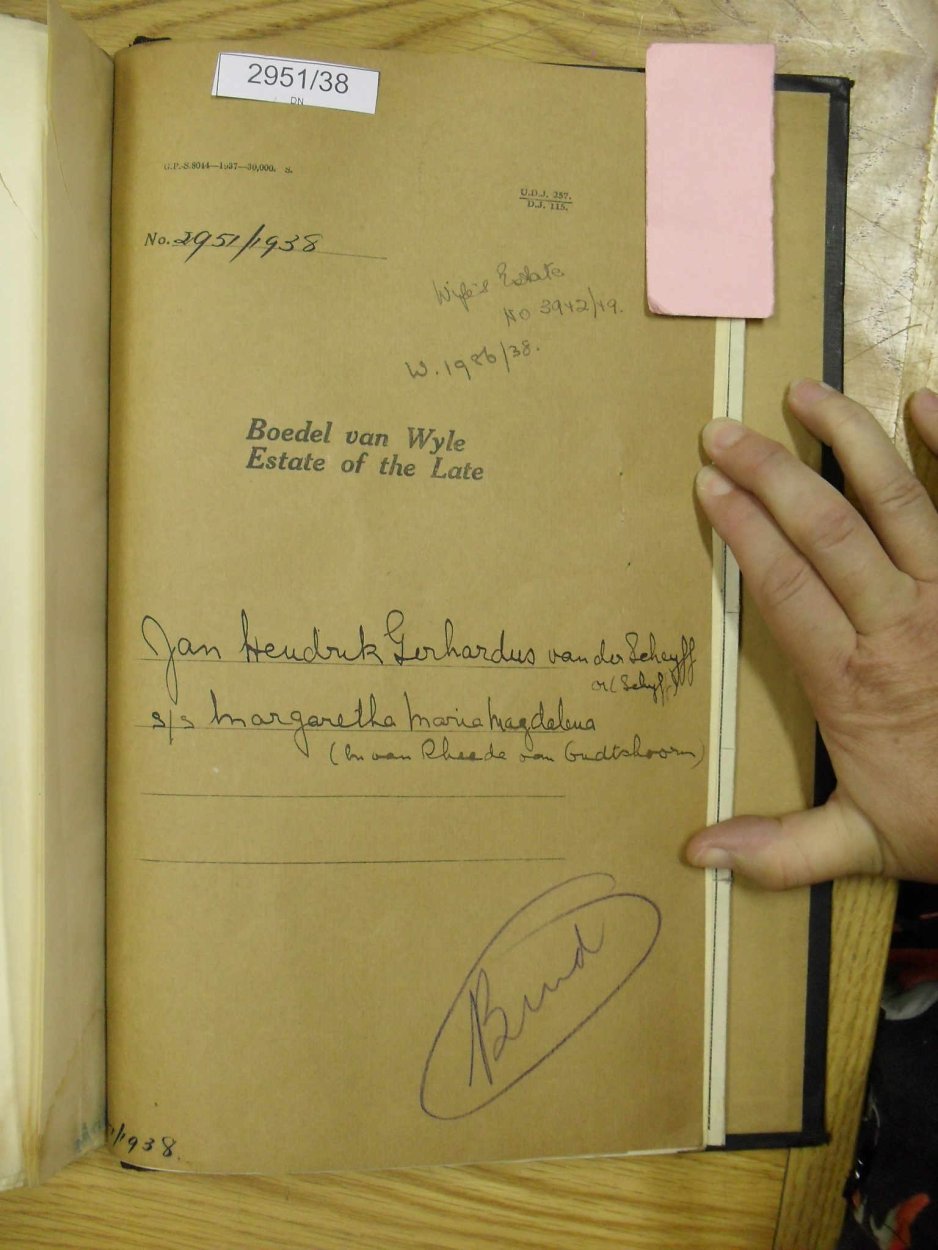 2951/38
DN
G.P.-S.8044—1937—30,000. S.
U.D.J. 257.
D.J. 115.
No. 2951/1938
Wife's Estate
No 3942/49.
W. 1986/38.
Boedel van Wyle
Estate of the Late
Jan Hendrik Gerhardus van der Scheyff
or (Schyff)
s/s Margaretha Maria Magdalena
(bn van Rheede van Oudtshoorn)
Bind
/1938.